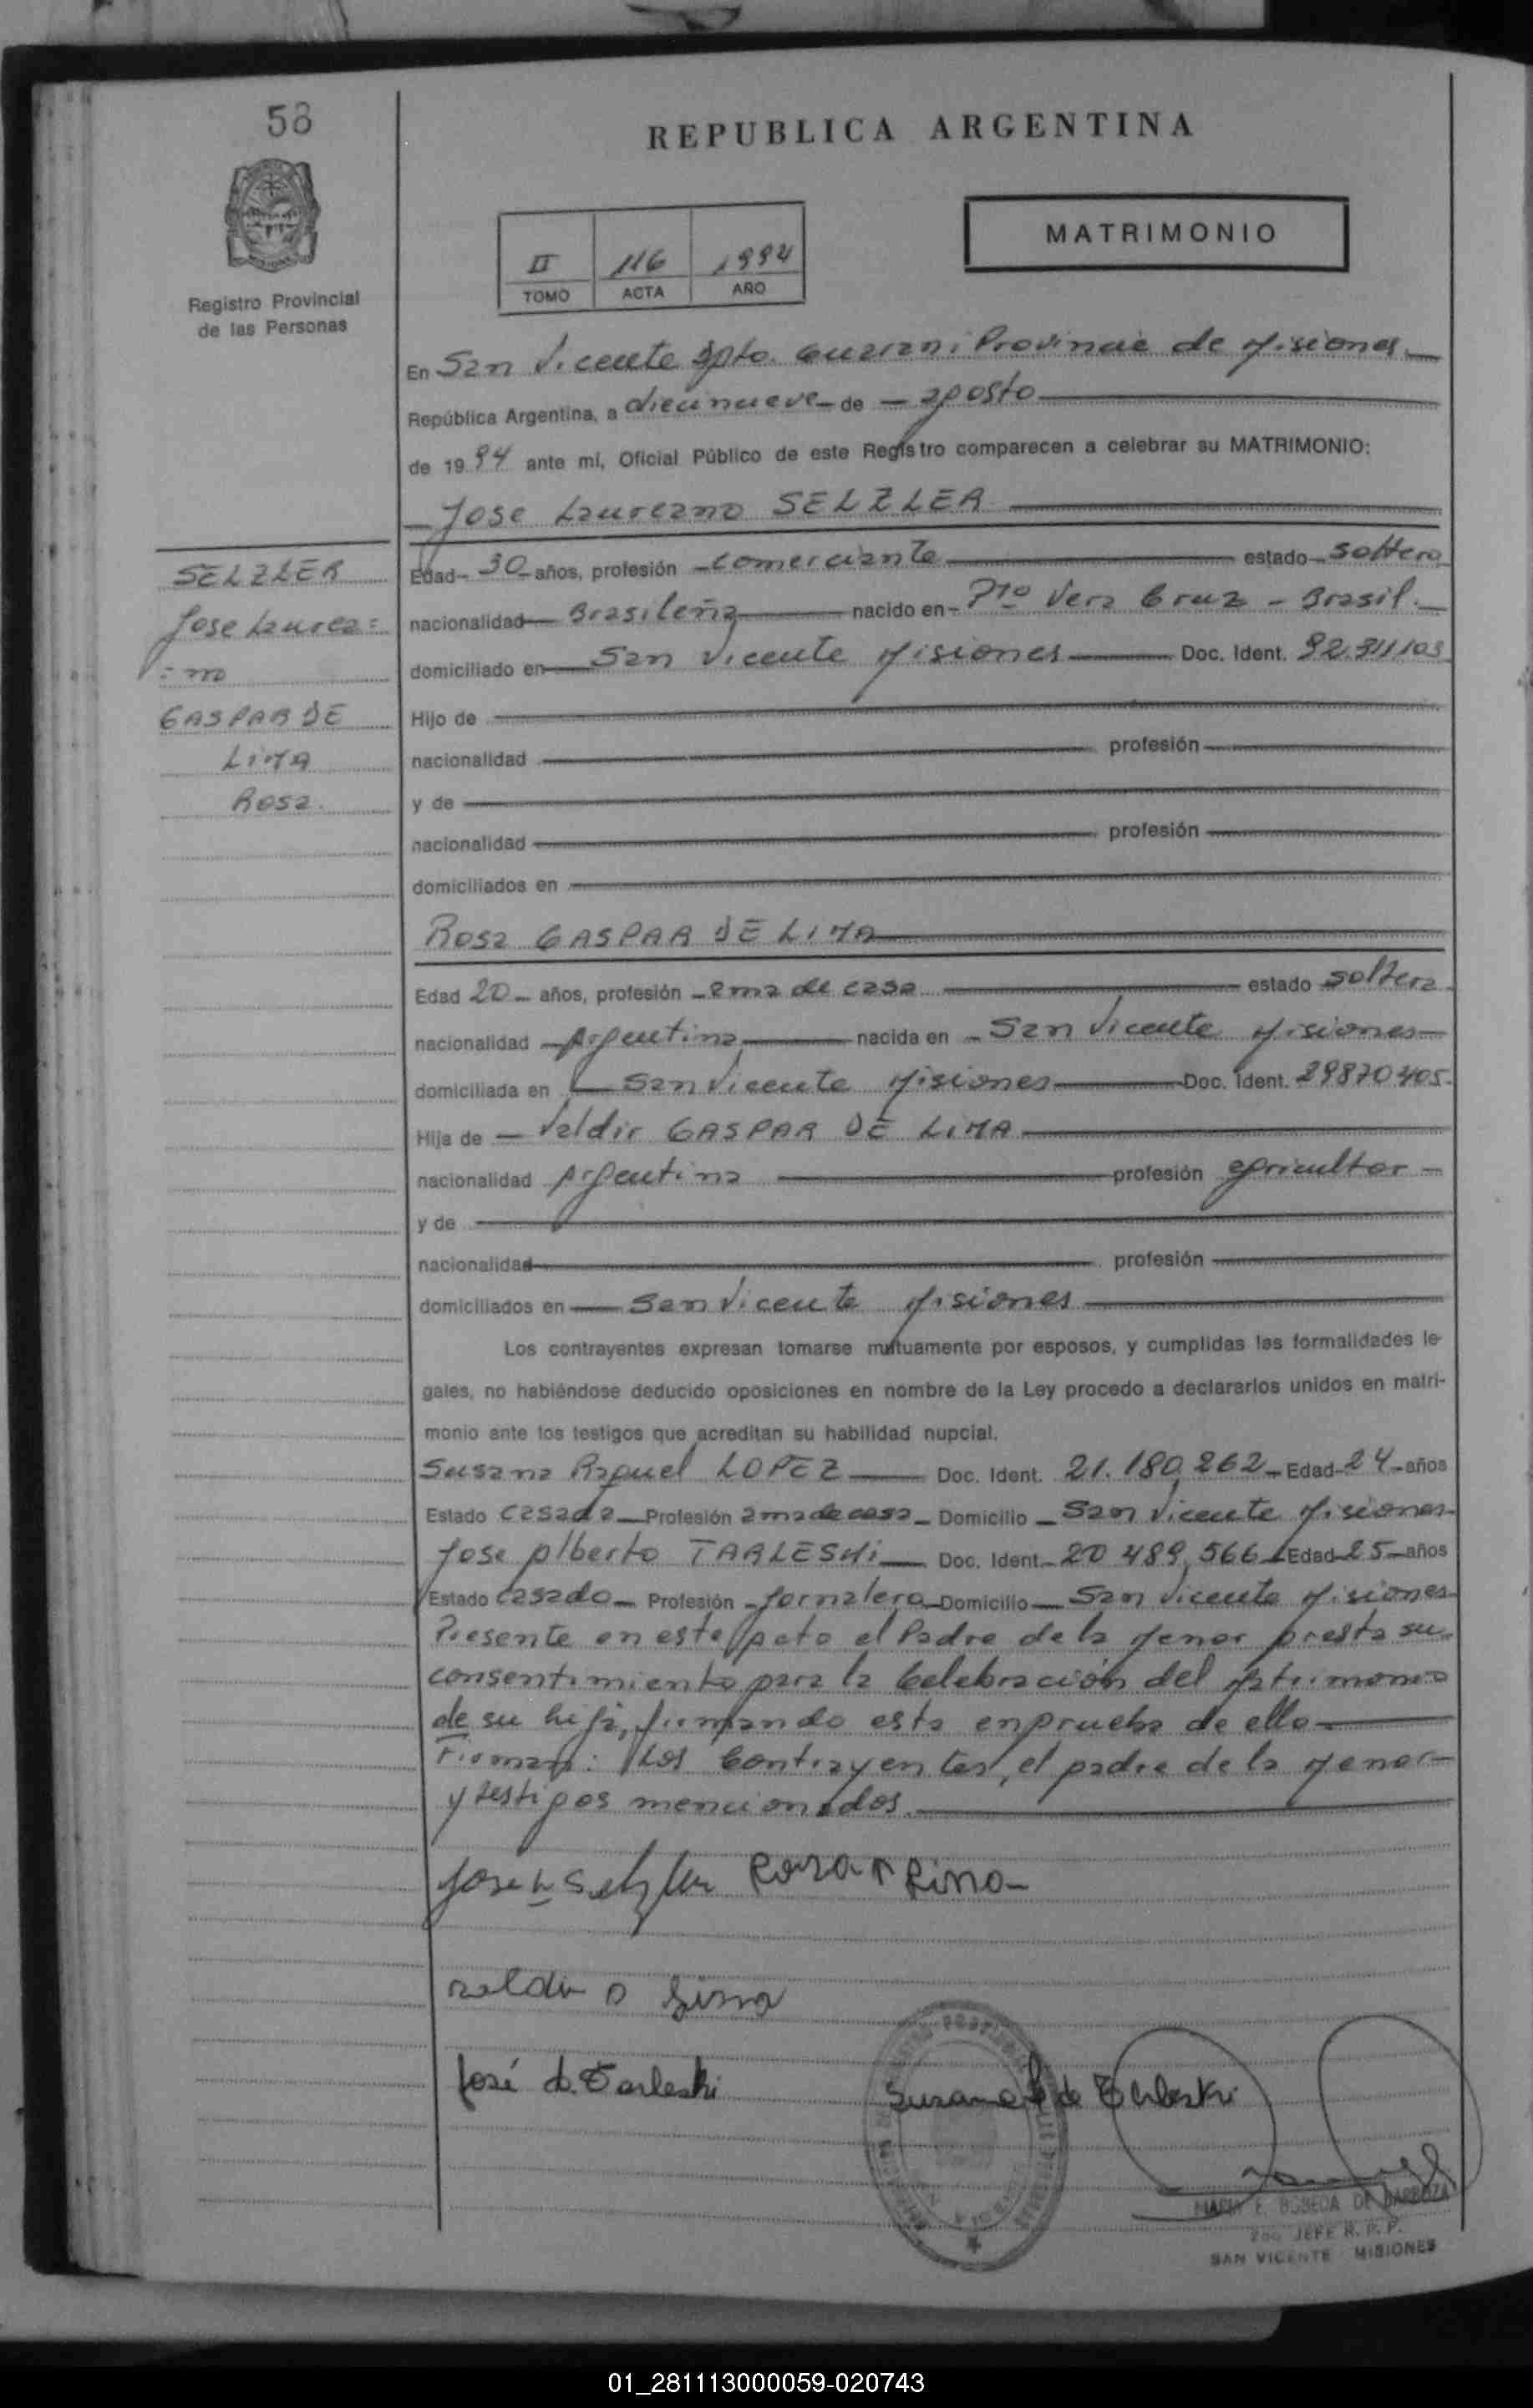 58
REPUBLICA ARGENTINA
MATRIMONIO
II 116 1994
TOMO ACTA AÑO
Registro Provincial
de las Personas
En San Vicente Dpto. Guarani Provincia de Misiones
República Argentina, a diecinueve de agosto
de 1994 ante mí, Oficial Público de este Registro comparecen a celebrar su MATRIMONIO:
Jose Laureano SELZLER
SELZLER
Jose Laurea=
=no
GASPAR DE
LIMA
Rosa.
Edad 30 años, profesión comerciante estado soltero
nacionalidad Brasileña nacido en Pto Vera Cruz - Brasil.
domiciliado en San Vicente Misiones Doc. Ident. 92.311.103
Hijo de
nacionalidad profesión
y de
nacionalidad profesión
domiciliados en
Rosa GASPAR DE LIMA
Edad 20 años, profesión ama de casa estado soltera
nacionalidad Argentina nacida en San Vicente Misiones
domiciliada en San Vicente Misiones Doc. Ident. 29870405.
Hija de Valdir GASPAR DE LIMA
nacionalidad Argentina profesión agricultor
y de
nacionalidad profesión
domiciliados en San Vicente Misiones
Los contrayentes expresan tomarse mutuamente por esposos, y cumplidas las formalidades le-
gales, no habiéndose deducido oposiciones en nombre de la Ley procedo a declararlos unidos en matri-
monio ante los testigos que acreditan su habilidad nupcial.
Susana Raquel LOPEZ Doc. Ident. 21.180.262 Edad 24 años
Estado casada Profesión ama de casa Domicilio San Vicente Misiones
Jose Alberto TARLESKi Doc. Ident. 20 489.566 Edad 25 años
Estado casado Profesión Jornalero Domicilio San Vicente Misiones
Presente en este Acto el Padre de la Menor presta su
consentimiento para la Celebración del Matrimonio
de su hija, firmando esta en prueba de ello
Firman: Los Contrayentes, el padre de la Menor
y testigos mencionados.
Jose L Selzler Rosa Lima
Valdir Lima
José A. Tarleski Susana de Tarleski
MARIA E. BOBEDA DE BARBOZA
2do JEFE R. P. P.
SAN VICENTE MISIONES
01_281113000059-020743